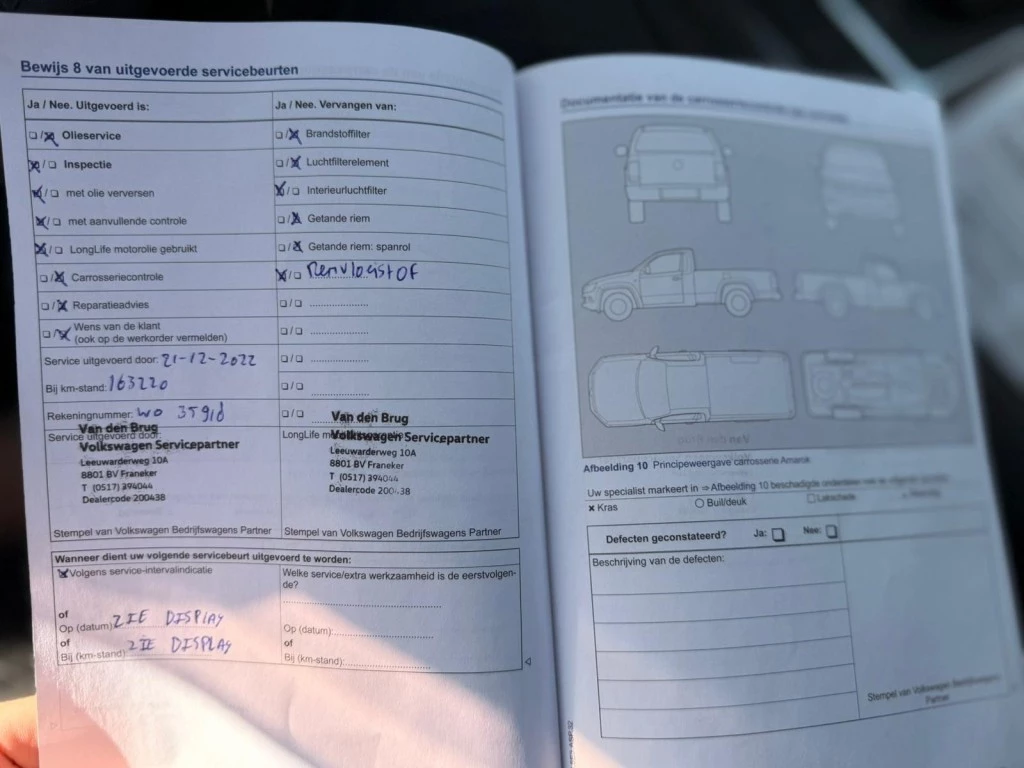 Bewijs 8 van uitgevoerde servicebeurten
Ja / Nee. Uitgevoerd is:
Olieservice
Inspectie
met olie verversen
met aanvullende controle
LongLife motorolie gebruikt
Carrosseriecontrole
Reparatieadvies
Wens van de klant
(ook op de werkorder vermelden)
Service uitgevoerd door: 21-12-2022
Bij km-stand: 163220
Rekeningnummer: WO
Service uitgevoerd door:
Van den Brug
Volkswagen Servicepartner
Leeuwarderweg 10A
8801 BV Franeker
T (0517) 394044
Dealercode 200438
Stempel van Volkswagen Bedrijfswagens Partner
Ja / Nee. Vervangen van:
Brandstoffilter
Luchtfilterelement
Interieurluchtfilter
Getande riem
Getande riem: spanrol
Remvloeistof
LongLife
Van den Brug
Volkswagen Servicepartner
Leeuwarderweg 10A
8801 BV Franeker
T (0517) 394044
Dealercode 200438
Stempel van Volkswagen Bedrijfswagens Partner
Wanneer dient uw volgende servicebeurt uitgevoerd te worden:
Volgens service-intervalindicatie
of
Op (datum): ZIE DISPLAY
of
Bij (km-stand): ZIE DISPLAY
Welke service/extra werkzaamheid is de eerstvolgen-
de?
Op (datum):
of
Bij (km-stand):
Documentatie van de
Afbeelding 10 Principeweergave carrosserie Amarok
Uw specialist markeert in ⇒ Afbeelding 10 beschadigde onderdelen
× Kras
Buil/deuk
Lakschade
Defecten geconstateerd? Ja: Nee:
Beschrijving van de defecten:
Stempel van Volkswagen Bedrijfswagens
Partner